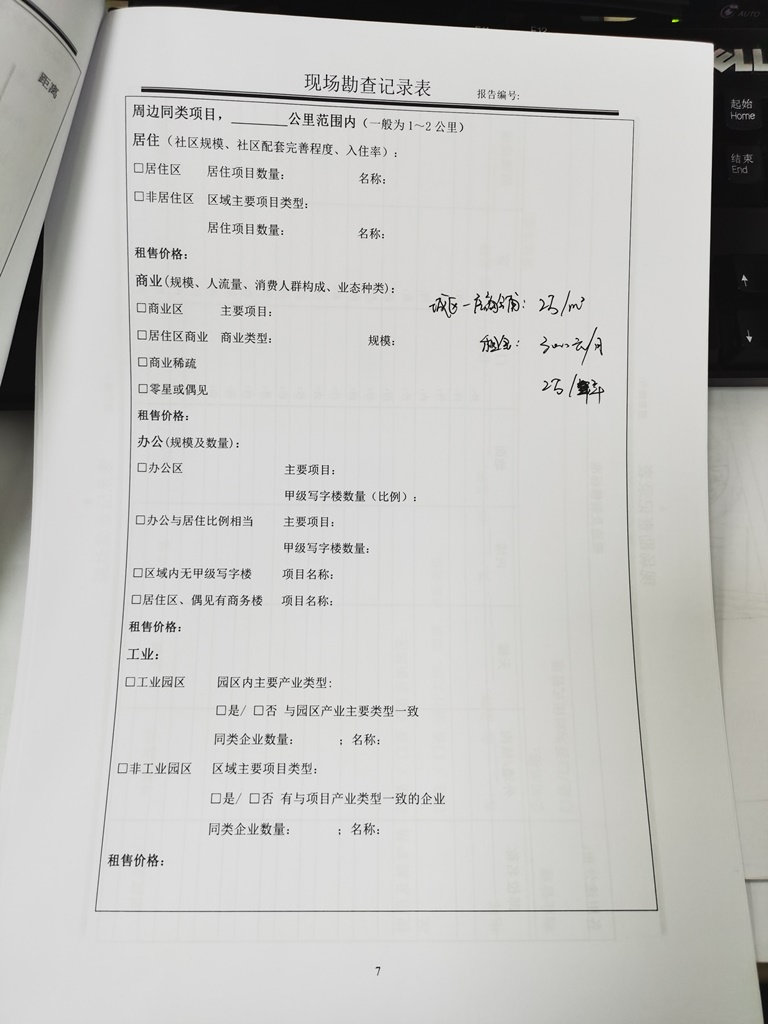 距离
AUTO
DELL
起始
Home
结束
End
现场勘查记录表
报告编号:
周边同类项目，______公里范围内（一般为1～2公里）
居住（社区规模、社区配套完善程度、入住率）:
□居住区 居住项目数量: 名称:
□非居住区 区域主要项目类型:
居住项目数量: 名称:
租售价格:
商业(规模、人流量、消费人群构成、业态种类):
□商业区 主要项目: 城区一层商铺: 2万/m²
□居住区商业 商业类型: 规模: 租金: 3000元/月
□商业稀疏
□零星或偶见 2万/年
租售价格:
办公(规模及数量):
□办公区 主要项目:
甲级写字楼数量（比例）:
□办公与居住比例相当 主要项目:
甲级写字楼数量:
□区域内无甲级写字楼 项目名称:
□居住区、偶见有商务楼 项目名称:
租售价格:
工业:
□工业园区 园区内主要产业类型:
□是/ □否 与园区产业主要类型一致
同类企业数量: ；名称:
□非工业园区 区域主要项目类型:
□是/ □否 有与项目产业类型一致的企业
同类企业数量: ；名称:
租售价格:
7